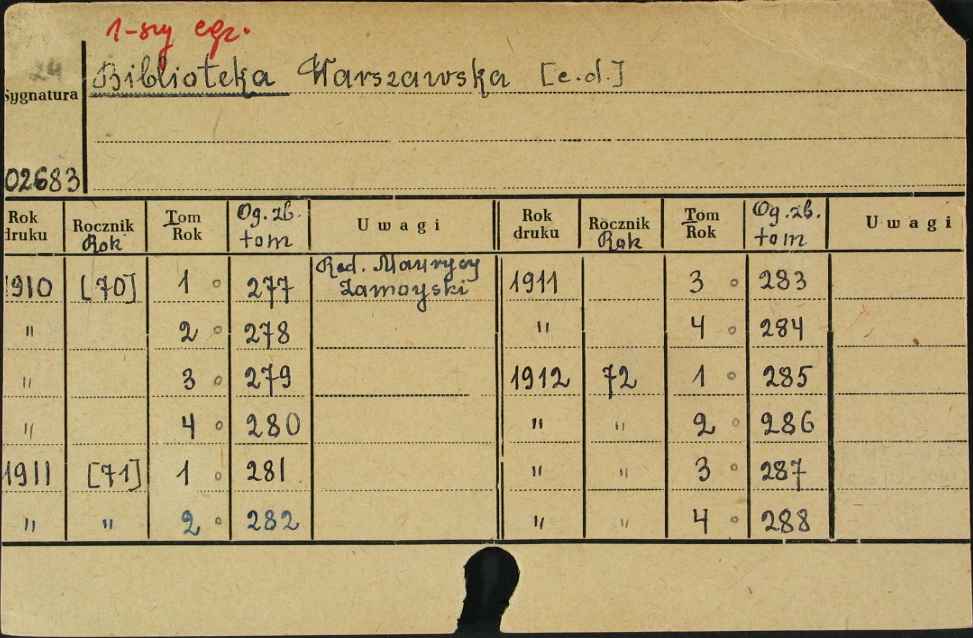 1-szy egz.
24
Biblioteka Warszawska [c.d.]
Sygnatura
02683
Rok druku Rocznik Rok Tom Rok Og. zb. tom Uwagi Rok druku Rocznik Rok Tom Rok Og. zb. tom Uwagi
1910 [70] 1 277 Red. Maurycy Zamoyski 1911 3 283
" 2 278 " 4 284
" 3 279 1912 72 1 285
" 4 280 " " 2 286
1911 [71] 1 281 " " 3 287
" " 2 282 " " 4 288